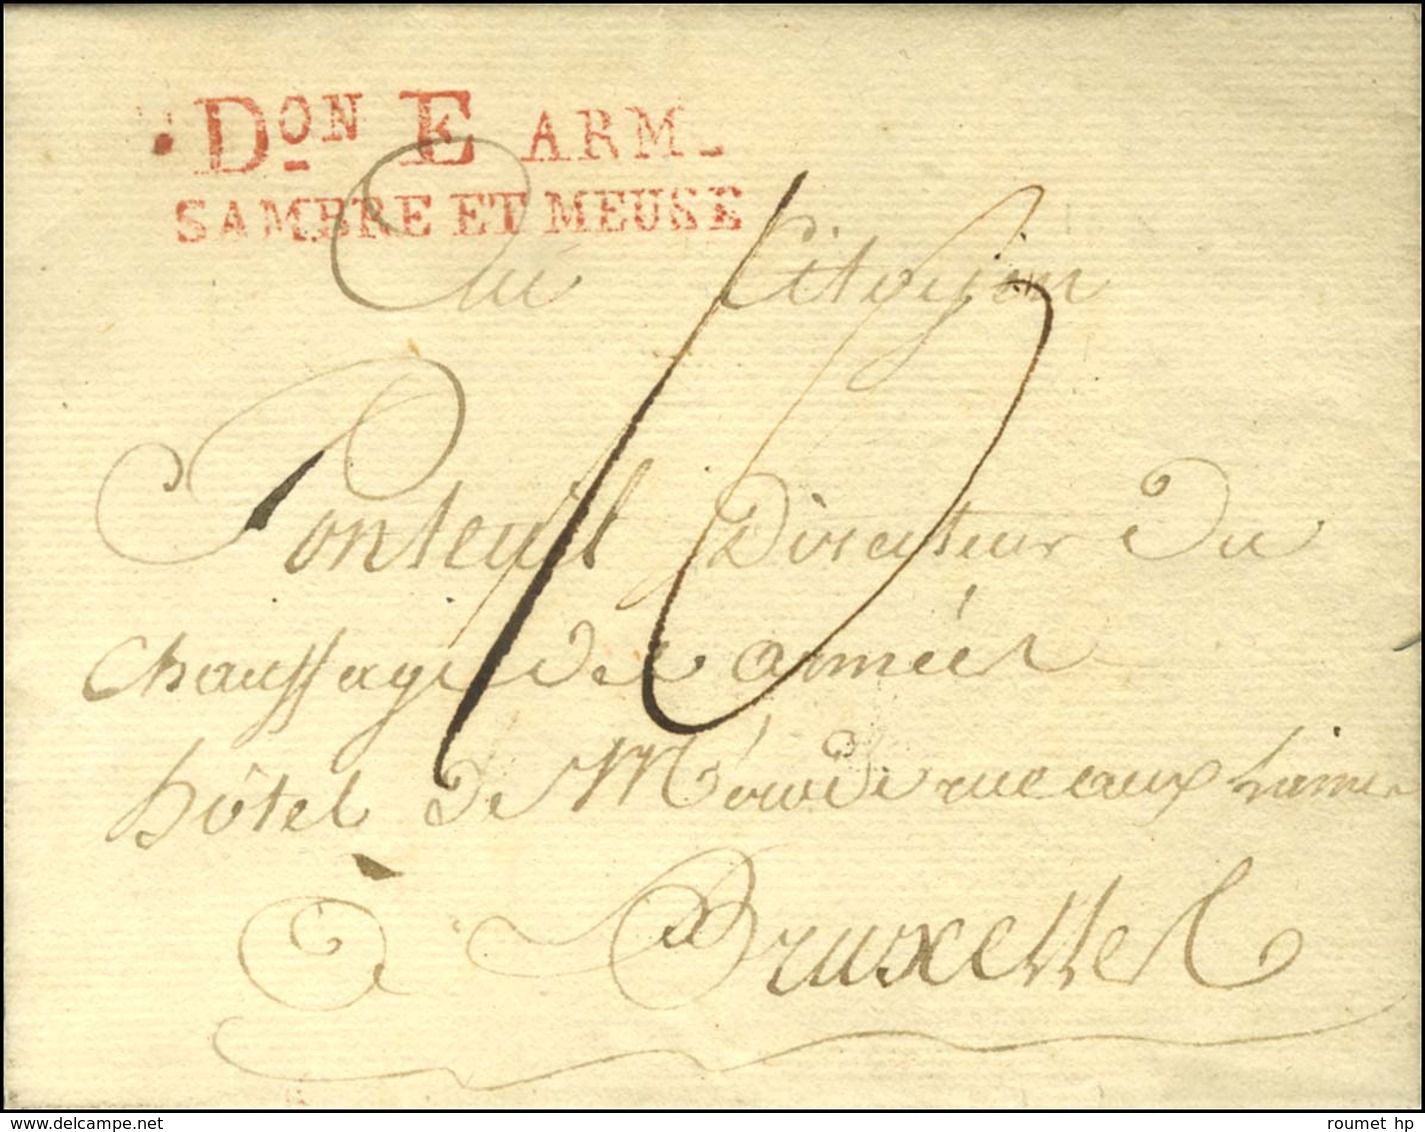 Don E ARM.
SAMBRE ET MEUSE
Au Citoyen
10
Ponteuil Directeur Du
Chauffage des armées
hôtel de Mérode rue aux Laines
à Bruxelles
www.delcampe.net
roumet hp